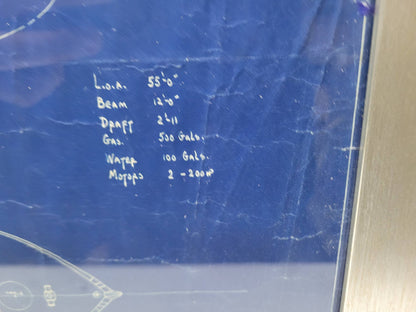 L.O.A. 55'-0"
Beam 12'-0"
Draft 2'-11
Gas. 500 Gals.
Water 100 Gals.
Motors 2 - 200 HP